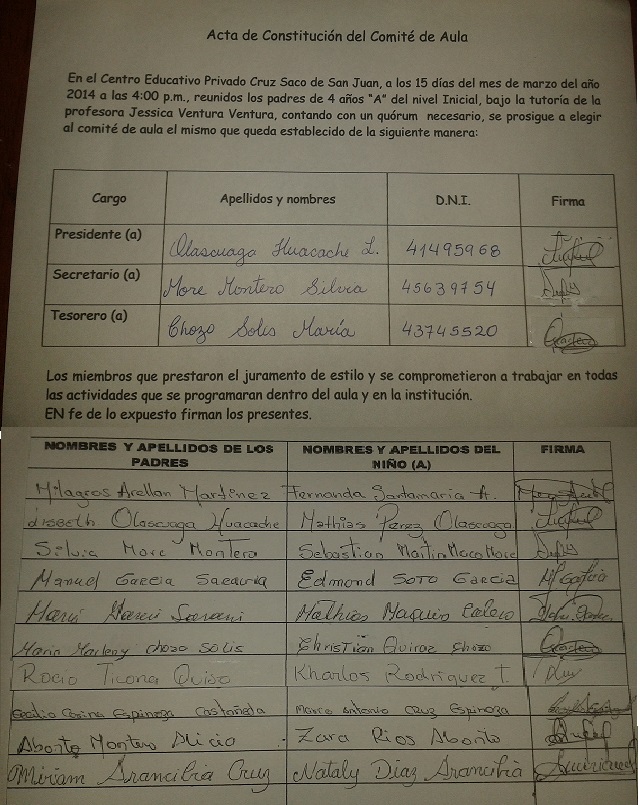 Acta de Constitución del Comité de Aula
En el Centro Educativo Privado Cruz Saco de San Juan, a los 15 días del mes de marzo del año
2014 a las 4:00 p.m., reunidos los padres de 4 años "A" del nivel Inicial, bajo la tutoría de la
profesora Jessica Ventura Ventura, contando con un quórum necesario, se prosigue a elegir
al comité de aula el mismo que queda establecido de la siguiente manera:
Cargo Apellidos y nombres D.N.I. Firma
Presidente (a) Olascuaga Huacache L. 41495968
Secretario (a) More Montero Silvia 45639754
Tesorero (a) Chozo Solis María 43745520
Los miembros que prestaron el juramento de estilo y se comprometieron a trabajar en todas
las actividades que se programaran dentro del aula y en la institución.
EN fe de lo expuesto firman los presentes.
NOMBRES Y APELLIDOS DE LOS PADRES NOMBRES Y APELLIDOS DEL NIÑO (A) FIRMA
Milagros Arellan Martinez Fernanda Santamaria A.
Lisbeth Olascuaga Huacache Mathias Perez Olascuaga
Silvia More Montero Sebastian Martin Maco More
Manuel Garcia Edmond Soto Garcia
Mathias Maquin
Maria Marleny chozo solis Christian Quiroz Chozo
Rocio Ticona Quispe Kharlos Rodriguez T.
Cecilia Corina Espinoza Castañeda Marco Antonio Cruz Espinoza
Aborto Montero Alicia Zara Rios Aborto
Miriam Arancibia Cruz Nataly Diaz Arancibia